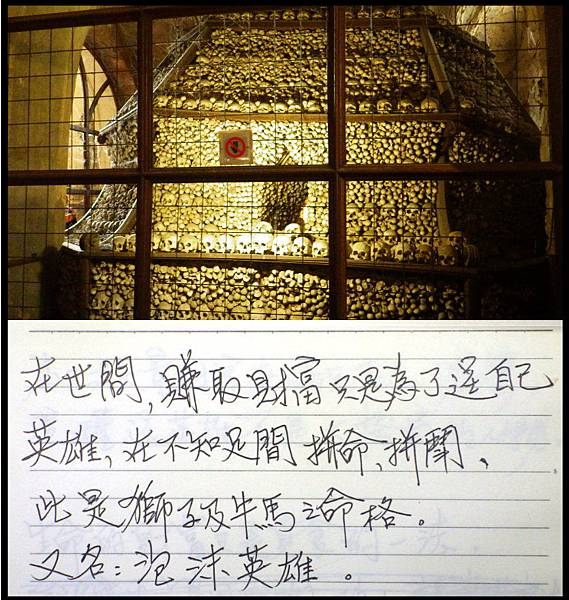 在世間，賺取財富只是為了逞自己
英雄，在不知足間拼命、拼鬧、
此是獅子及牛馬之命格。
又名：泡沫英雄。